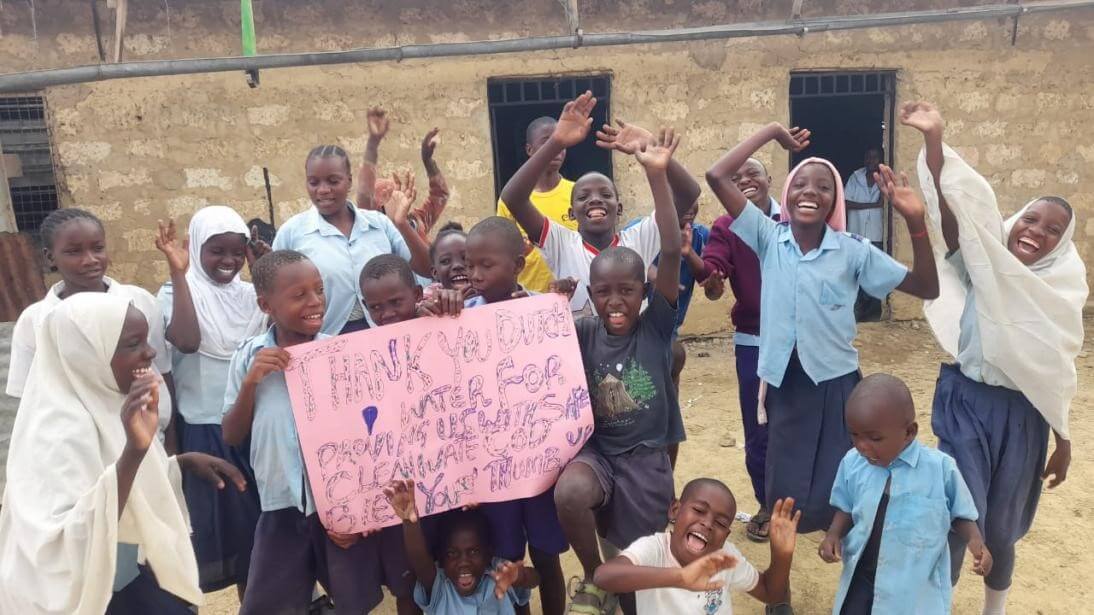 THANK YOU DUTCH
WATER FOR
PROVIDING US WITH SAFE
CLEAN WATE GOD
BLESS YOU! THUMB UP